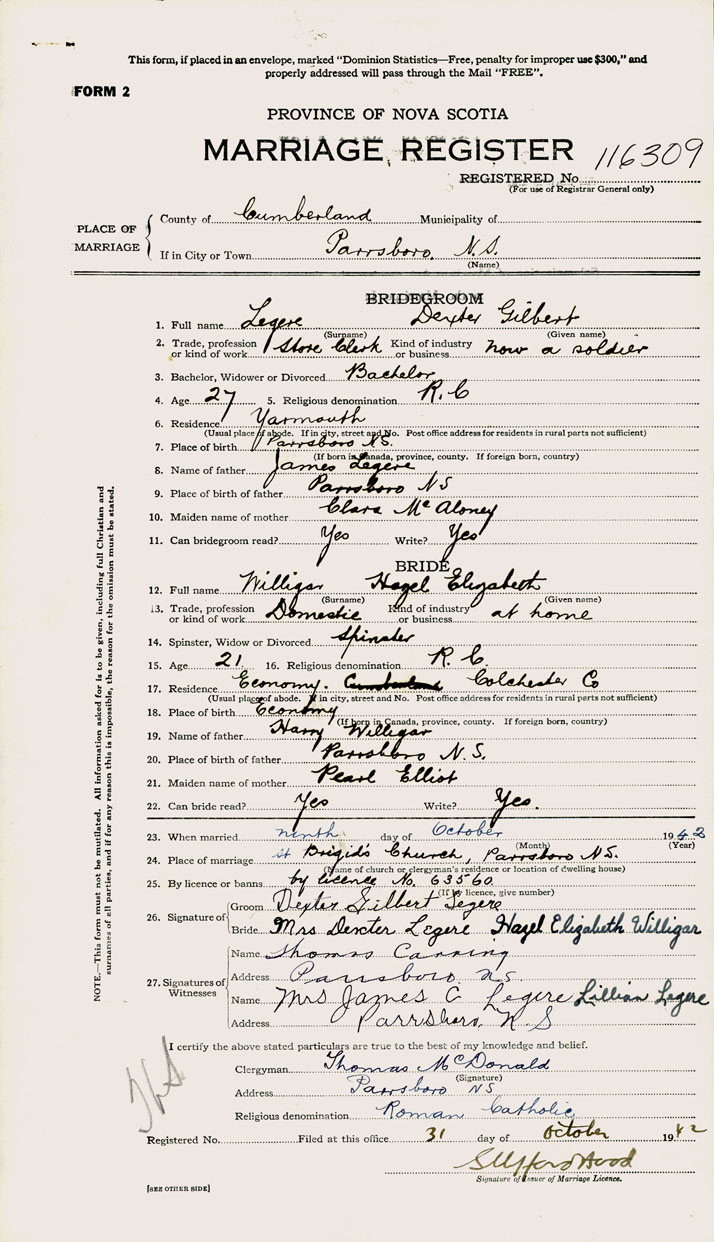 This form, if placed in an envelope, marked "Dominion Statistics—Free, penalty for improper use $300," and
properly addressed will pass through the Mail "FREE".
FORM 2
PROVINCE OF NOVA SCOTIA
MARRIAGE REGISTER 116309
REGISTERED No.
(For use of Registrar General only)
PLACE OF MARRIAGE
County of Cumberland Municipality of
If in City or Town Parrsboro, N.S.
(Name)
BRIDEGROOM
1. Full name Legere Dexter Gilbert
(Surname) (Given name)
2. Trade, profession or kind of work Store Clerk Kind of industry or business now a soldier
3. Bachelor, Widower or Divorced Bachelor
4. Age 27 5. Religious denomination R.C
6. Residence Yarmouth
(Usual place of abode. If in city, street and No. Post office address for residents in rural parts not sufficient)
7. Place of birth Parrsboro N.S.
(If born in Canada, province, county. If foreign born, country)
8. Name of father James Legere
9. Place of birth of father Parrsboro NS
10. Maiden name of mother Clara McAloney
11. Can bridegroom read? Yes Write? Yes
BRIDE
12. Full name Willigar Hazel Elizabeth
(Surname) (Given name)
13. Trade, profession or kind of work Domestic Kind of industry or business at home
14. Spinster, Widow or Divorced Spinster
15. Age 21 16. Religious denomination R.C.
17. Residence Economy. Cumberland Colchester Co
(Usual place of abode. If in city, street and No. Post office address for residents in rural parts not sufficient)
18. Place of birth Economy
(If born in Canada, province, county. If foreign born, country)
19. Name of father Harry Willigar
20. Place of birth of father Parrsboro N.S.
21. Maiden name of mother Pearl Elliot
22. Can bride read? Yes Write? Yes.
23. When married ninth day of October 1942
(Month) (Year)
24. Place of marriage St Brigid's Church, Parrsboro NS.
(Name of church or clergyman's residence or location of dwelling house)
25. By licence or banns by licence No. 63560
(If by licence, give number)
26. Signature of
Groom Dexter Gilbert Legere
Bride Mrs Dexter Legere Hazel Elizabeth Willigar
27. Signatures of Witnesses
Name Thomas Canning
Address Parrsboro NS
Name Mrs James C Legere Lillian Legere
Address Parrsboro, N.S
I certify the above stated particulars are true to the best of my knowledge and belief.
Clergyman Thomas McDonald
(Signature)
Address Parrsboro NS
Religious denomination Roman Catholic
Registered No. Filed at this office 31 day of October 1942
Signature of Issuer of Marriage Licence.
[SEE OTHER SIDE]
NOTE.—This form must not be mutilated. All information asked for is to be given, including full Christian and
surnames of all parties, and if for any reason this is impossible, the reason for the omission must be stated.